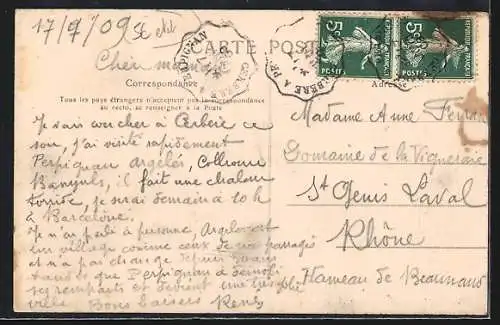 17/7/09
CARTE POSTALE
PERPIGNAN
CERBERE A PERPIGNAN
5c POSTES
REPUBLIQUE FRANÇAISE
5c POSTES
REPUBLIQUE FRANÇAISE
Correspondance
Tous les pays étrangers n'acceptent pas la correspondance
au recto, se renseigner à la Poste
Je vais coucher à Cerbère ce
soir, j'ai visité rapidement
Perpignan Argelès, Collioure
Banyuls, il fait une chaleur
torride, je serai demain à 10 h
à Barcelone.
Je n'ai parlé à personne Argelès est
un village comme ceux de
et n'a pas changé depuis
que Perpignan a démoli
ses remparts et devient une très jolie
ville Bons baisers René
Madame Anne
Domaine de la Vigneraie
St Genis Laval
Rhône
Hameau de Beaunand